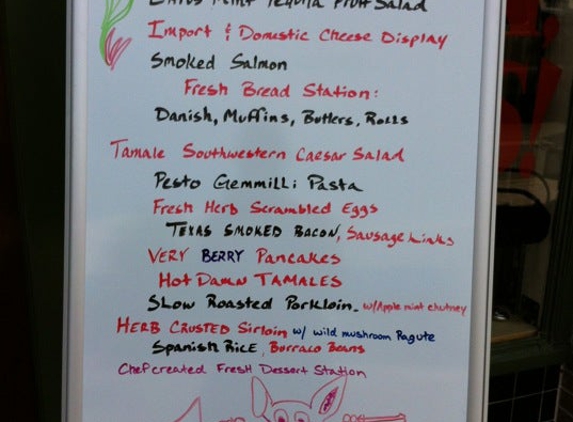 Citrus Mint Tequila Fruit Salad
Import & Domestic Cheese Display
Smoked Salmon
Fresh Bread Station:
Danish, Muffins, Butters, Rolls
Tamale Southwestern Caesar Salad
Pesto Gemmilli Pasta
Fresh Herb Scrambled Eggs
Texas Smoked Bacon, Sausage Links
VERY BERRY Pancakes
Hot Damn TAMALES
Slow Roasted Porkloin w/Apple mint chutney
HERB CRUSTED Sirloin w/ wild mushroom Ragute
Spanish Rice, Borraco Beans
Chef created Fresh Dessert Station